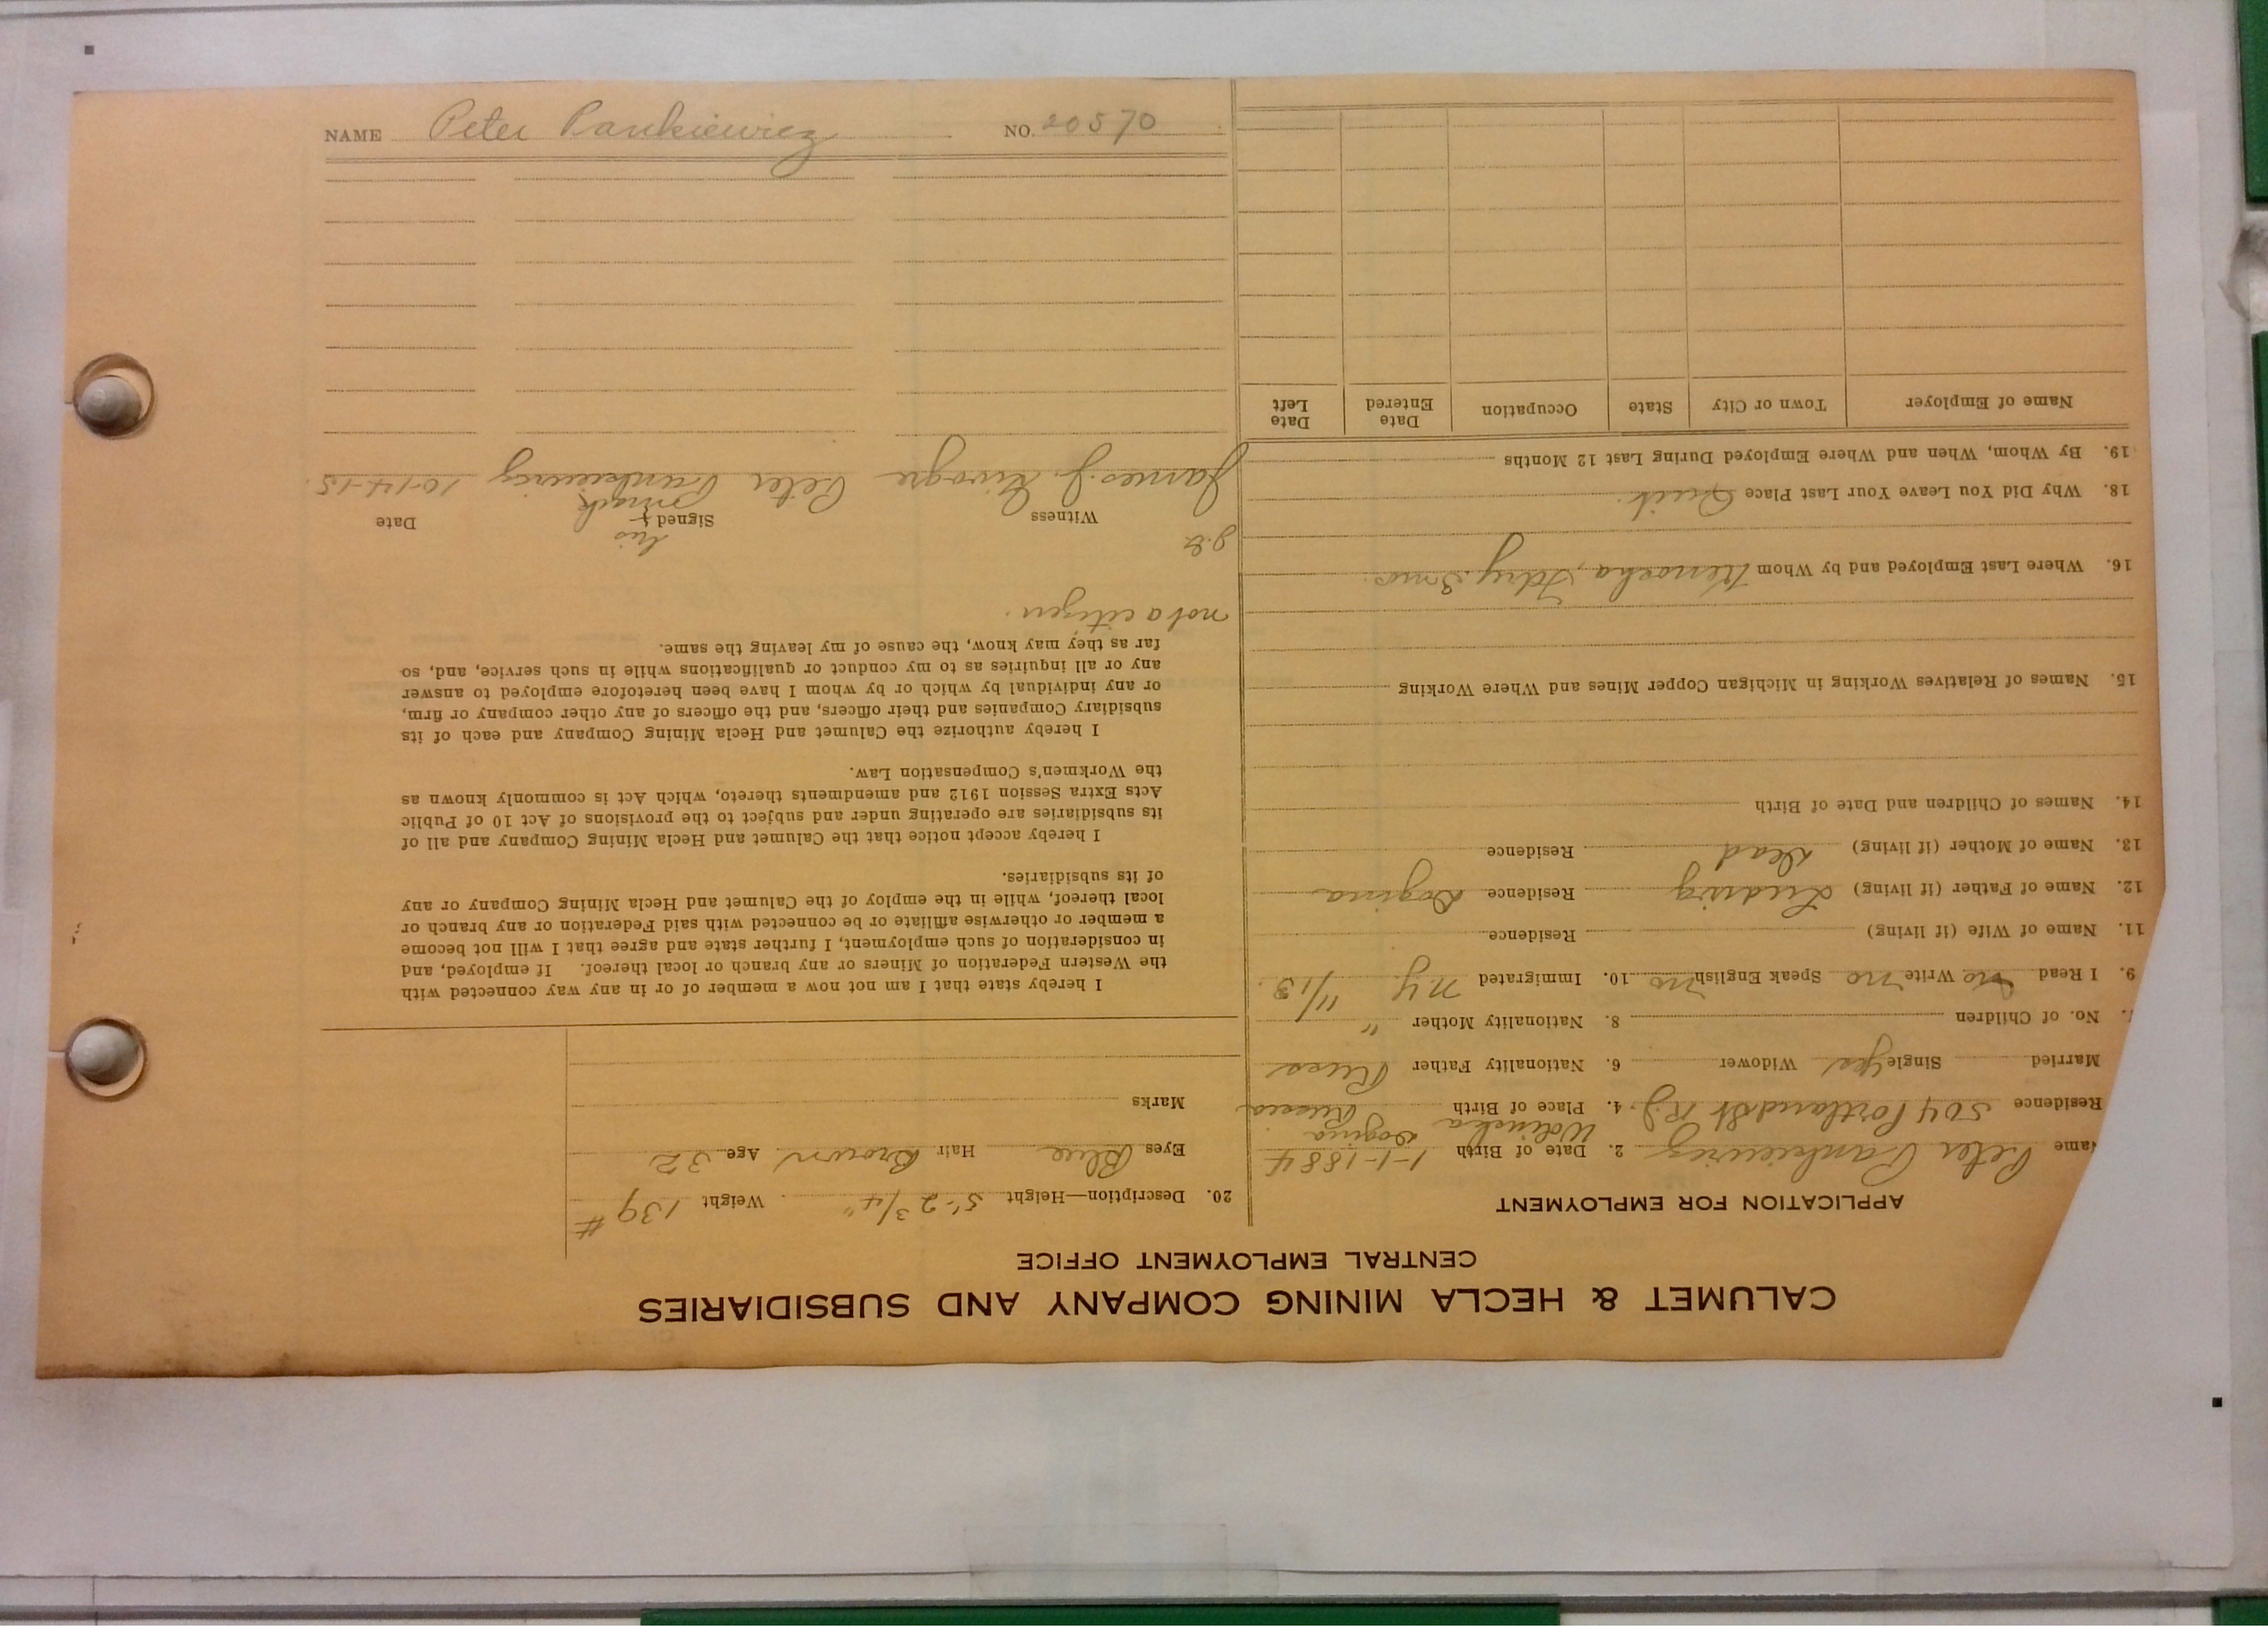 CALUMET & HECLA MINING COMPANY AND SUBSIDIARIES
CENTRAL EMPLOYMENT OFFICE
APPLICATION FOR EMPLOYMENT
Name Peter Pankiewicz 2. Date of Birth 1-1-1884
Residence 504 Portland St R.J. 4. Place of Birth Wolinska Dogina Russia
Married Single yes Widower 6. Nationality Father Russ
7. No. of Children 8. Nationality Mother "
9. I Read no Write no Speak English no 10. Immigrated N.Y. 11/13.
11. Name of Wife (if living) Residence
12. Name of Father (if living) Ludwig Residence Dogina
13. Name of Mother (if living) Dead Residence
14. Names of Children and Date of Birth
15. Names of Relatives Working in Michigan Copper Mines and Where Working
16. Where Last Employed and by Whom Kenosha, Fdry. 3 mos.
18. Why Did You Leave Your Last Place Quit.
19. By Whom, When and Where Employed During Last 12 Months
Name of Employer Town or City State Occupation Date Entered Date Left
20. Description—Height 5'-2 3/4" Weight 139 #
Eyes Blue Hair Brown Age 32
Marks
I hereby state that I am not now a member of or in any way connected with
the Western Federation of Miners or any branch or local thereof. If employed, and
in consideration of such employment, I further state and agree that I will not become
a member or otherwise affiliate or be connected with said Federation or any branch or
local thereof, while in the employ of the Calumet and Hecla Mining Company or any
of its subsidiaries.
I hereby accept notice that the Calumet and Hecla Mining Company and all of
its subsidiaries are operating under and subject to the provisions of Act 10 of Public
Acts Extra Session 1912 and amendments thereto, which Act is commonly known as
the Workmen's Compensation Law.
I hereby authorize the Calumet and Hecla Mining Company and each of its
subsidiary Companies and their officers, and the officers of any other company or firm,
or any individual by which or by whom I have been heretofore employed to answer
any or all inquiries as to my conduct or qualifications while in such service, and, so
far as they may know, the cause of my leaving the same.
not a citizen.
his
Witness Signed + Date
mark
James J. Peter Pankiewicz 10-14-15.
NAME Peter Pankiewicz NO. 20570